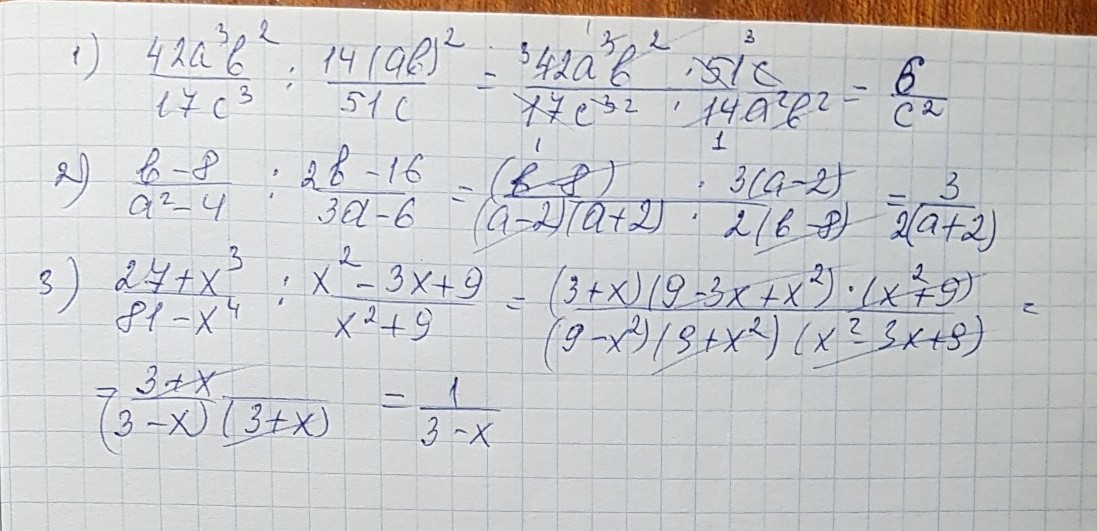 1) 42a³b²/17c³ : 14(ab)²/51c = 42a³b² · 51c/17c³ · 14a²b² = 6/c²
2) b-8/a²-4 : 2b-16/3a-6 = (b-8) · 3(a-2)/(a-2)(a+2) · 2(b-8) = 3/2(a+2)
3) 27+x³/81-x⁴ : x²-3x+9/x²+9 = (3+x)(9-3x+x²)·(x²+9)/(9-x²)(9+x²)(x²-3x+9) =
= 3+x/(3-x)(3+x) = 1/3-x